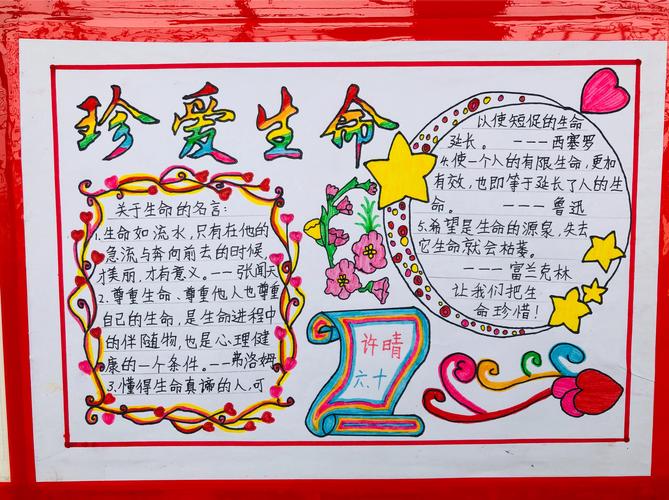 珍爱生命
关于生命的名言:
1.生命如流水,只有在他的
急流与奔向前去的时候,
才美丽,才有意义。---张闻天
2.尊重生命、尊重他人也尊重
自己的生命,是生命进程中
的伴随物,也是心理健
康的一个条件。--弗洛姆
3.懂得生命真谛的人,可
以使短促的生命
延长。----西塞罗
4.使一个人的有限生命,更加
有效,也即等于延长了人的生
命。----鲁迅
5.希望是生命的源泉,失去
它生命就会枯萎。
----富兰克林
让我们把生
命珍惜!
许晴
六.十